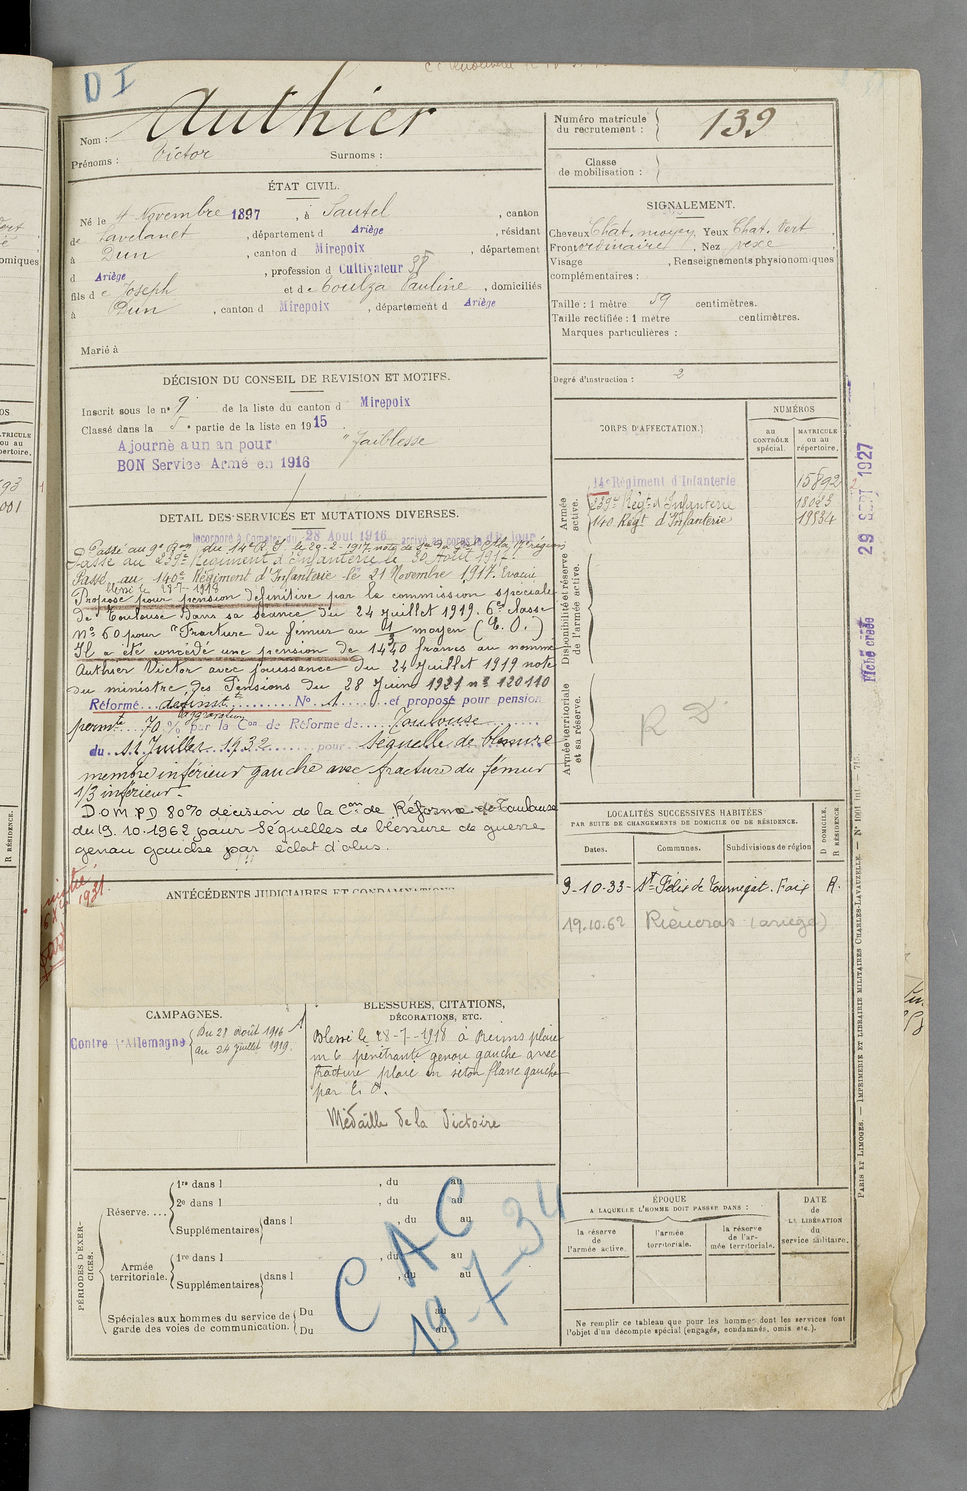 D I
Nom : Authier
Prénoms : Victor Surnoms :
Numéro matricule
du recrutement : 139
Classe
de mobilisation :
ÉTAT CIVIL.
Né le 4 Novembre 1897, à Sautel, canton
de Lavelanet, département d Ariège, résidant
à Dun, canton d Mirepoix, département
d Ariège, profession d Cultivateur
fils de Joseph et de Toulza Pauline, domiciliés
à Dun, canton d Mirepoix, département d Ariège
Marié à
SIGNALEMENT.
Cheveux Chat. moyen Yeux Chat. Vert
Front ordinaire, Nez vexe
Visage , Renseignements physionomiques
complémentaires :
Taille : 1 mètre 59 centimètres.
Taille rectifiée : 1 mètre centimètres.
Marques particulières :
Degré d'instruction : 2
DÉCISION DU CONSEIL DE REVISION ET MOTIFS.
Inscrit sous le n° 9 de la liste du canton d Mirepoix
Classé dans la 5e partie de la liste en 1915
Ajourné a un an pour "faiblesse
BON Service Armé en 1916
DETAIL DES SERVICES ET MUTATIONS DIVERSES.
Incorporé à Compter du 28 Août 1916 arrivé au corps le dit jour
Passé au 9e Bon du 14e R.I. le 29-2-1917, note de
Passé au 239e Régiment d'Infanterie le 30 Août 1917.
Passé au 140e Régiment d'Infanterie le 21 Novembre 1917. Evacué
blessé le 28-7-1918
Proposé pour pension définitive par la commission spéciale
de Toulouse dans sa séance du 24 Juillet 1919. 6e classe
N° 60 pour "Fracture du fémur au 1/3 moyen (E.O.)
Il a été concédé une pension de 1440 francs au nommé
Authier Victor avec jouissance du 24 Juillet 1919 note
du ministre des Pensions du 28 Juin 1921 n° 120110
Réformé définitt N° 1 et proposé pour pension
aggravation
permte 70 % par la Con de Réforme de Toulouse
du 11 Juillet 1932 pour Séquelle de blessure
membre inférieur gauche avec fracture du fémur
1/3 inférieur.
D.O.M. P.D 80% décision de la Con de Réforme de Toulouse
du 19.10.1962 pour Séquelles de blessure de guerre
genou gauche par éclat d'obus.
CORPS D'AFFECTATION.
NUMÉROS
au
CONTRÔLE
spécial.
MATRICULE
ou au
répertoire.
Armée
active.
14e Régiment d'Infanterie 15892
239e Régt d'Infanterie 18023
140 Régt d'Infanterie 19534
Disponibilité et réserve
de l'armée active.
Armée territoriale
et sa réserve.
R D.
29 SEPT 1927
Fiche créée
LOCALITÉS SUCCESSIVES HABITÉES
PAR SUITE DE CHANGEMENTS DE DOMICILE OU DE RÉSIDENCE.
Dates. Communes. Subdivisions de région
D DOMICILE.
R RÉSIDENCE
9-10-33- St Félix de Tournegat. Foix R.
19.10.62 Rieucros (ariège)
ANTÉCÉDENTS JUDICIAIRES ET CONDAMNATIONS
CAMPAGNES.
Contre l'Allemagne
Du 28 Août 1916
au 24 Juillet 1919.
BLESSURES, CITATIONS,
DÉCORATIONS, ETC.
Blessé le 28-7-1918 à Reims plaie
pénétrante genou gauche avec
fracture plaie en séton flanc gauche
par E. O.
Médaille de la Victoire
PÉRIODES D'EXERCICES.
Réserve....
1re dans l , du au
2e dans l , du au
Supplémentaires dans l , du au
Armée
territoriale.
1re dans l , du au
Supplémentaires dans l , du au
Spéciales aux hommes du service de
garde des voies de communication.
Du au
Du au
CAC
19-7-34
ÉPOQUE
A LAQUELLE L'HOMME DOIT PASSER DANS :
la réserve
de
l'armée active.
l'armée
territoriale.
la réserve
de l'armée territoriale.
DATE
de
LA LIBÉRATION
du
service militaire.
Ne remplir ce tableau que pour les hommes dont les services font
l'objet d'un décompte spécial (engagés, condamnés, omis etc.).
PARIS ET LIMOGES. — IMPRIMERIE ET LIBRAIRIE MILITAIRES CHARLES-LAVAUZELLE. —